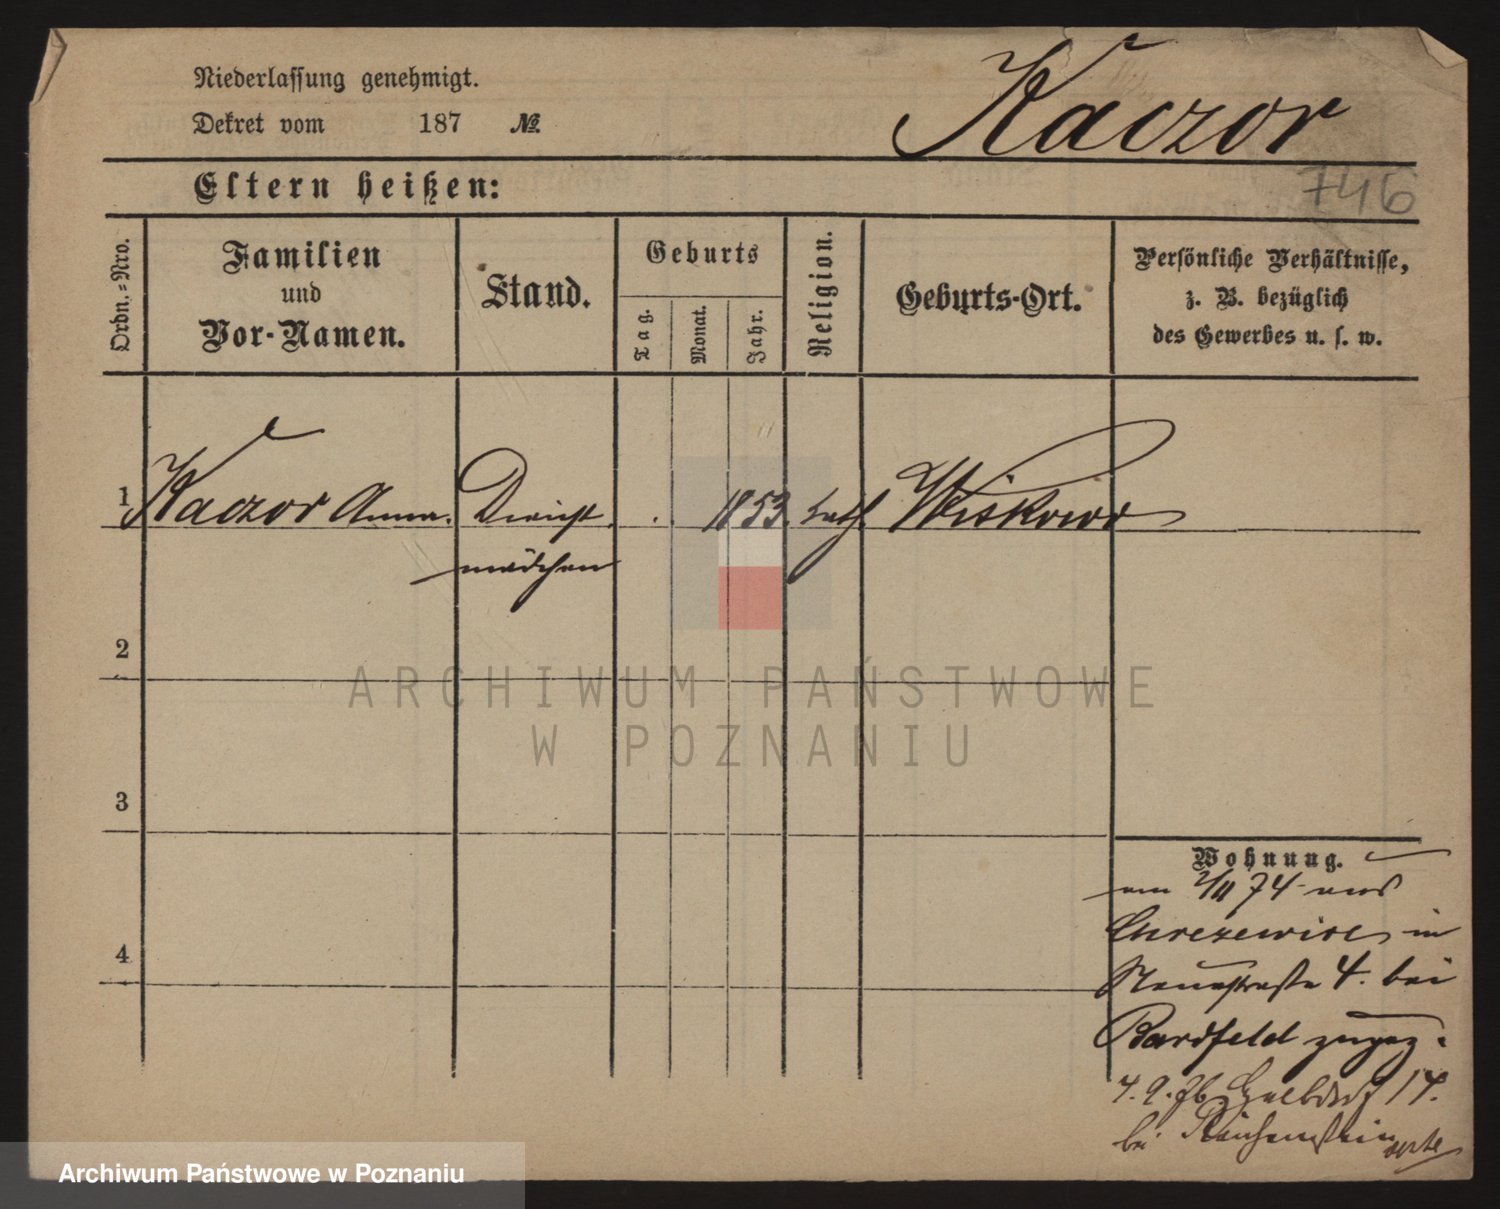 Niederlassung genehmigt.
Dekret vom 187 №
Kaczor
746
Eltern heißen:
Ordn.-Nro.
Familien
und
Vor-Namen.
Stand.
Geburts
Tag.
Monat.
Jahr.
Religion.
Geburts-Ort.
Persönliche Verhältnisse,
z. B. bezüglich
des Gewerbes u. s. w.
1 Kaczor Anna. Dienst 1853. kath. Wiskowo
mädchen
2
ARCHIWUM PAŃSTWOWE
W POZNANIU
3
Wohnung.
am 2/11 74 aus
in
4
Neuestraße 4. bei
Bardfeld zugez.
4. 9. 76 Halbdorf 14.
bei
Archiwum Państwowe w Poznaniu